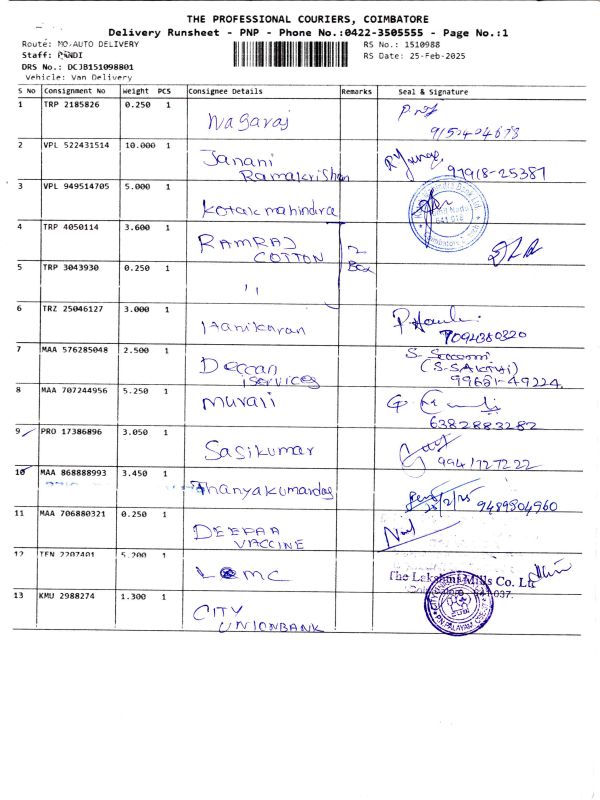 THE PROFESSIONAL COURIERS, COIMBATORE
Delivery Runsheet - PNP - Phone No.:0422-3505555 - Page No.:1
Route: MC-AUTO DELIVERY
RS No.: 1510988
Staff: PANDI
RS Date: 25-Feb-2025
DRS No.: DCJB151098801
Vehicle: Van Delivery
S No Consignment No Weight PCS Consignee Details Remarks Seal & Signature
1 TRP 2185826 0.250 1 Nagaraj
2 VPL 522431514 10.000 1 Janani
Ramakrishan 97918-25387
3 VPL 949514705 5.000 1 Kotak mahindra
4 TRP 4050114 3.600 1 RAMRAJ
COTTON 2
Box
5 TRP 3043930 0.250 1 "
6 TRZ 25046127 3.000 1 Harikaran
7 MAA 576285048 2.500 1 Deccan
Services
(S-SAKTHI)
99651-49224
8 MAA 707244956 5.250 1 Murali
6382883282
9 PRO 17386896 3.050 1 Sasikumar
9941727222
10 MAA 868888993 3.450 1 Thanyakumardas
25/2/25 9489504960
11 MAA 706880321 0.250 1 DEEPAA
VACCINE
12 TEN 2207401 5.200 1 LMC
The Lakshmi Mills Co. Ltd
Coimbatore 641 037.
13 KMU 2988274 1.300 1 CITY
UNION BANK